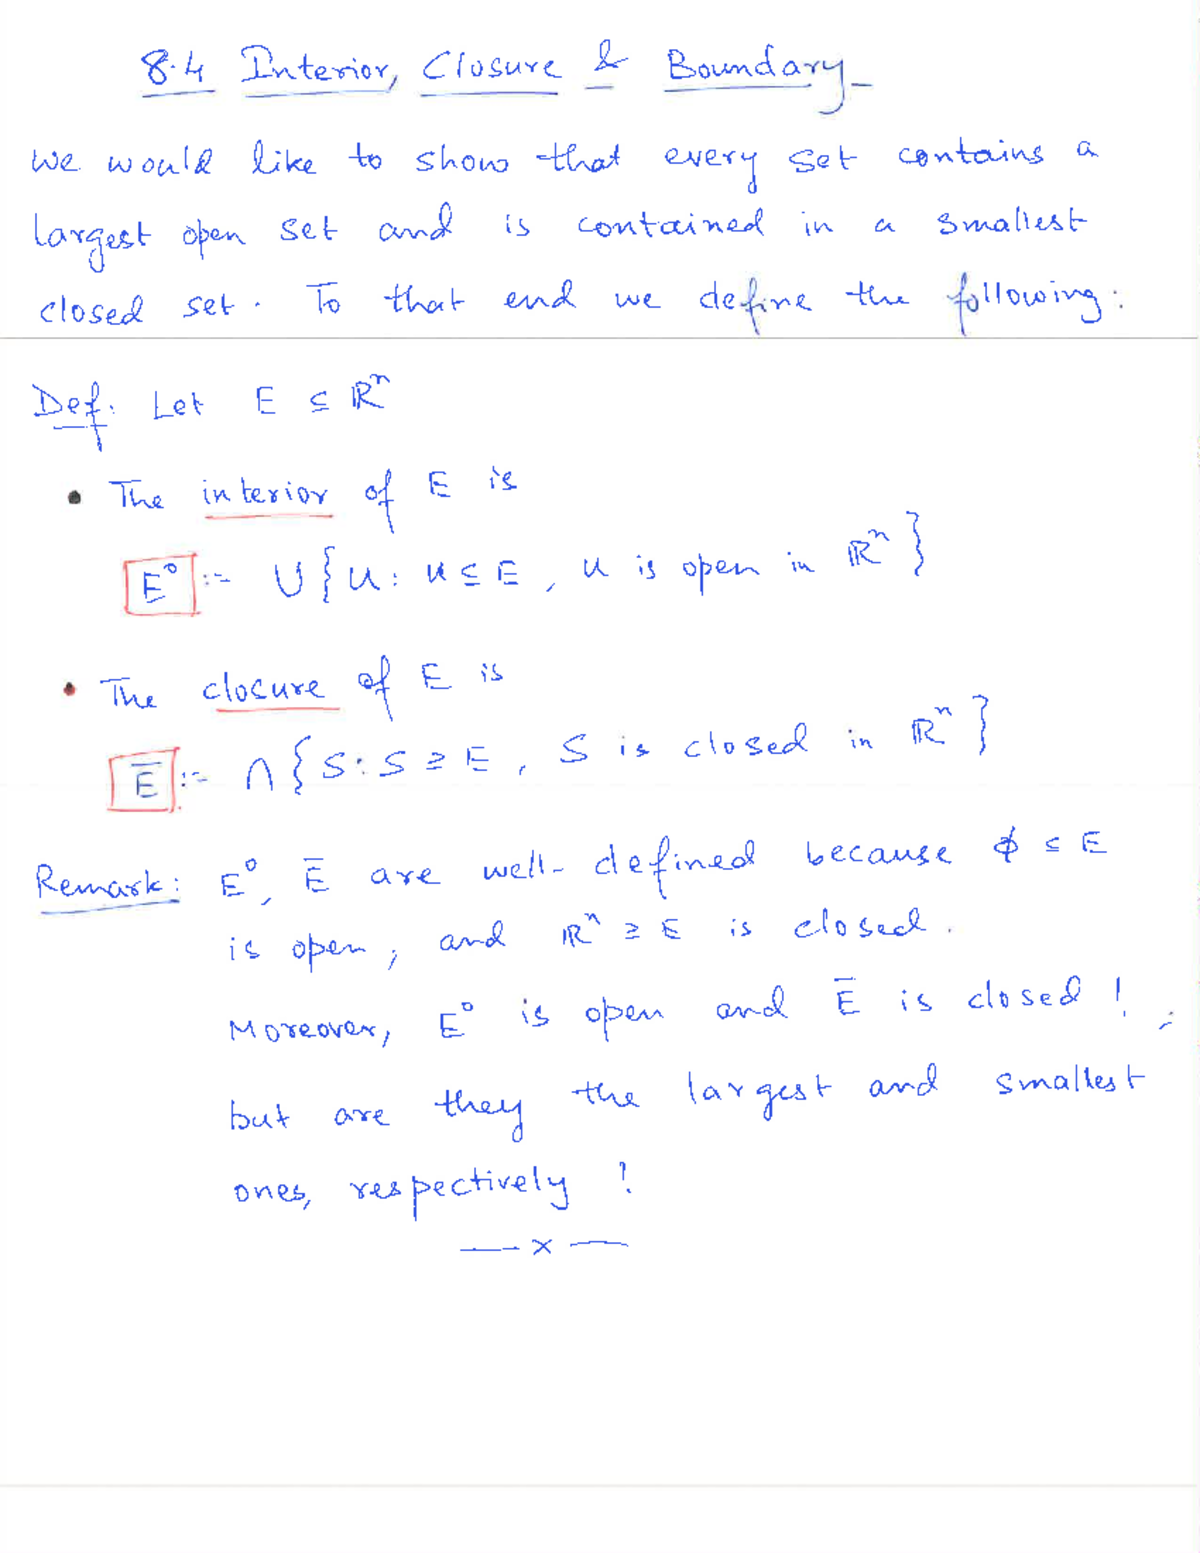 8.4 Interior, Closure & Boundary
We would like to show that every set contains a
largest open set and is contained in a smallest
closed set. To that end we define the following:
Def: Let E ⊆ ℝⁿ
• The interior of E is
E° := ∪{U: U ⊆ E, U is open in ℝⁿ}
• The closure of E is
E̅ := ∩{S: S ⊇ E, S is closed in ℝⁿ}
Remark: E°, E̅ are well-defined because ϕ ⊆ E
is open, and ℝⁿ ⊇ E is closed.
Moreover, E° is open and E̅ is closed!,
but are they the largest and smallest
ones, respectively?
—x—